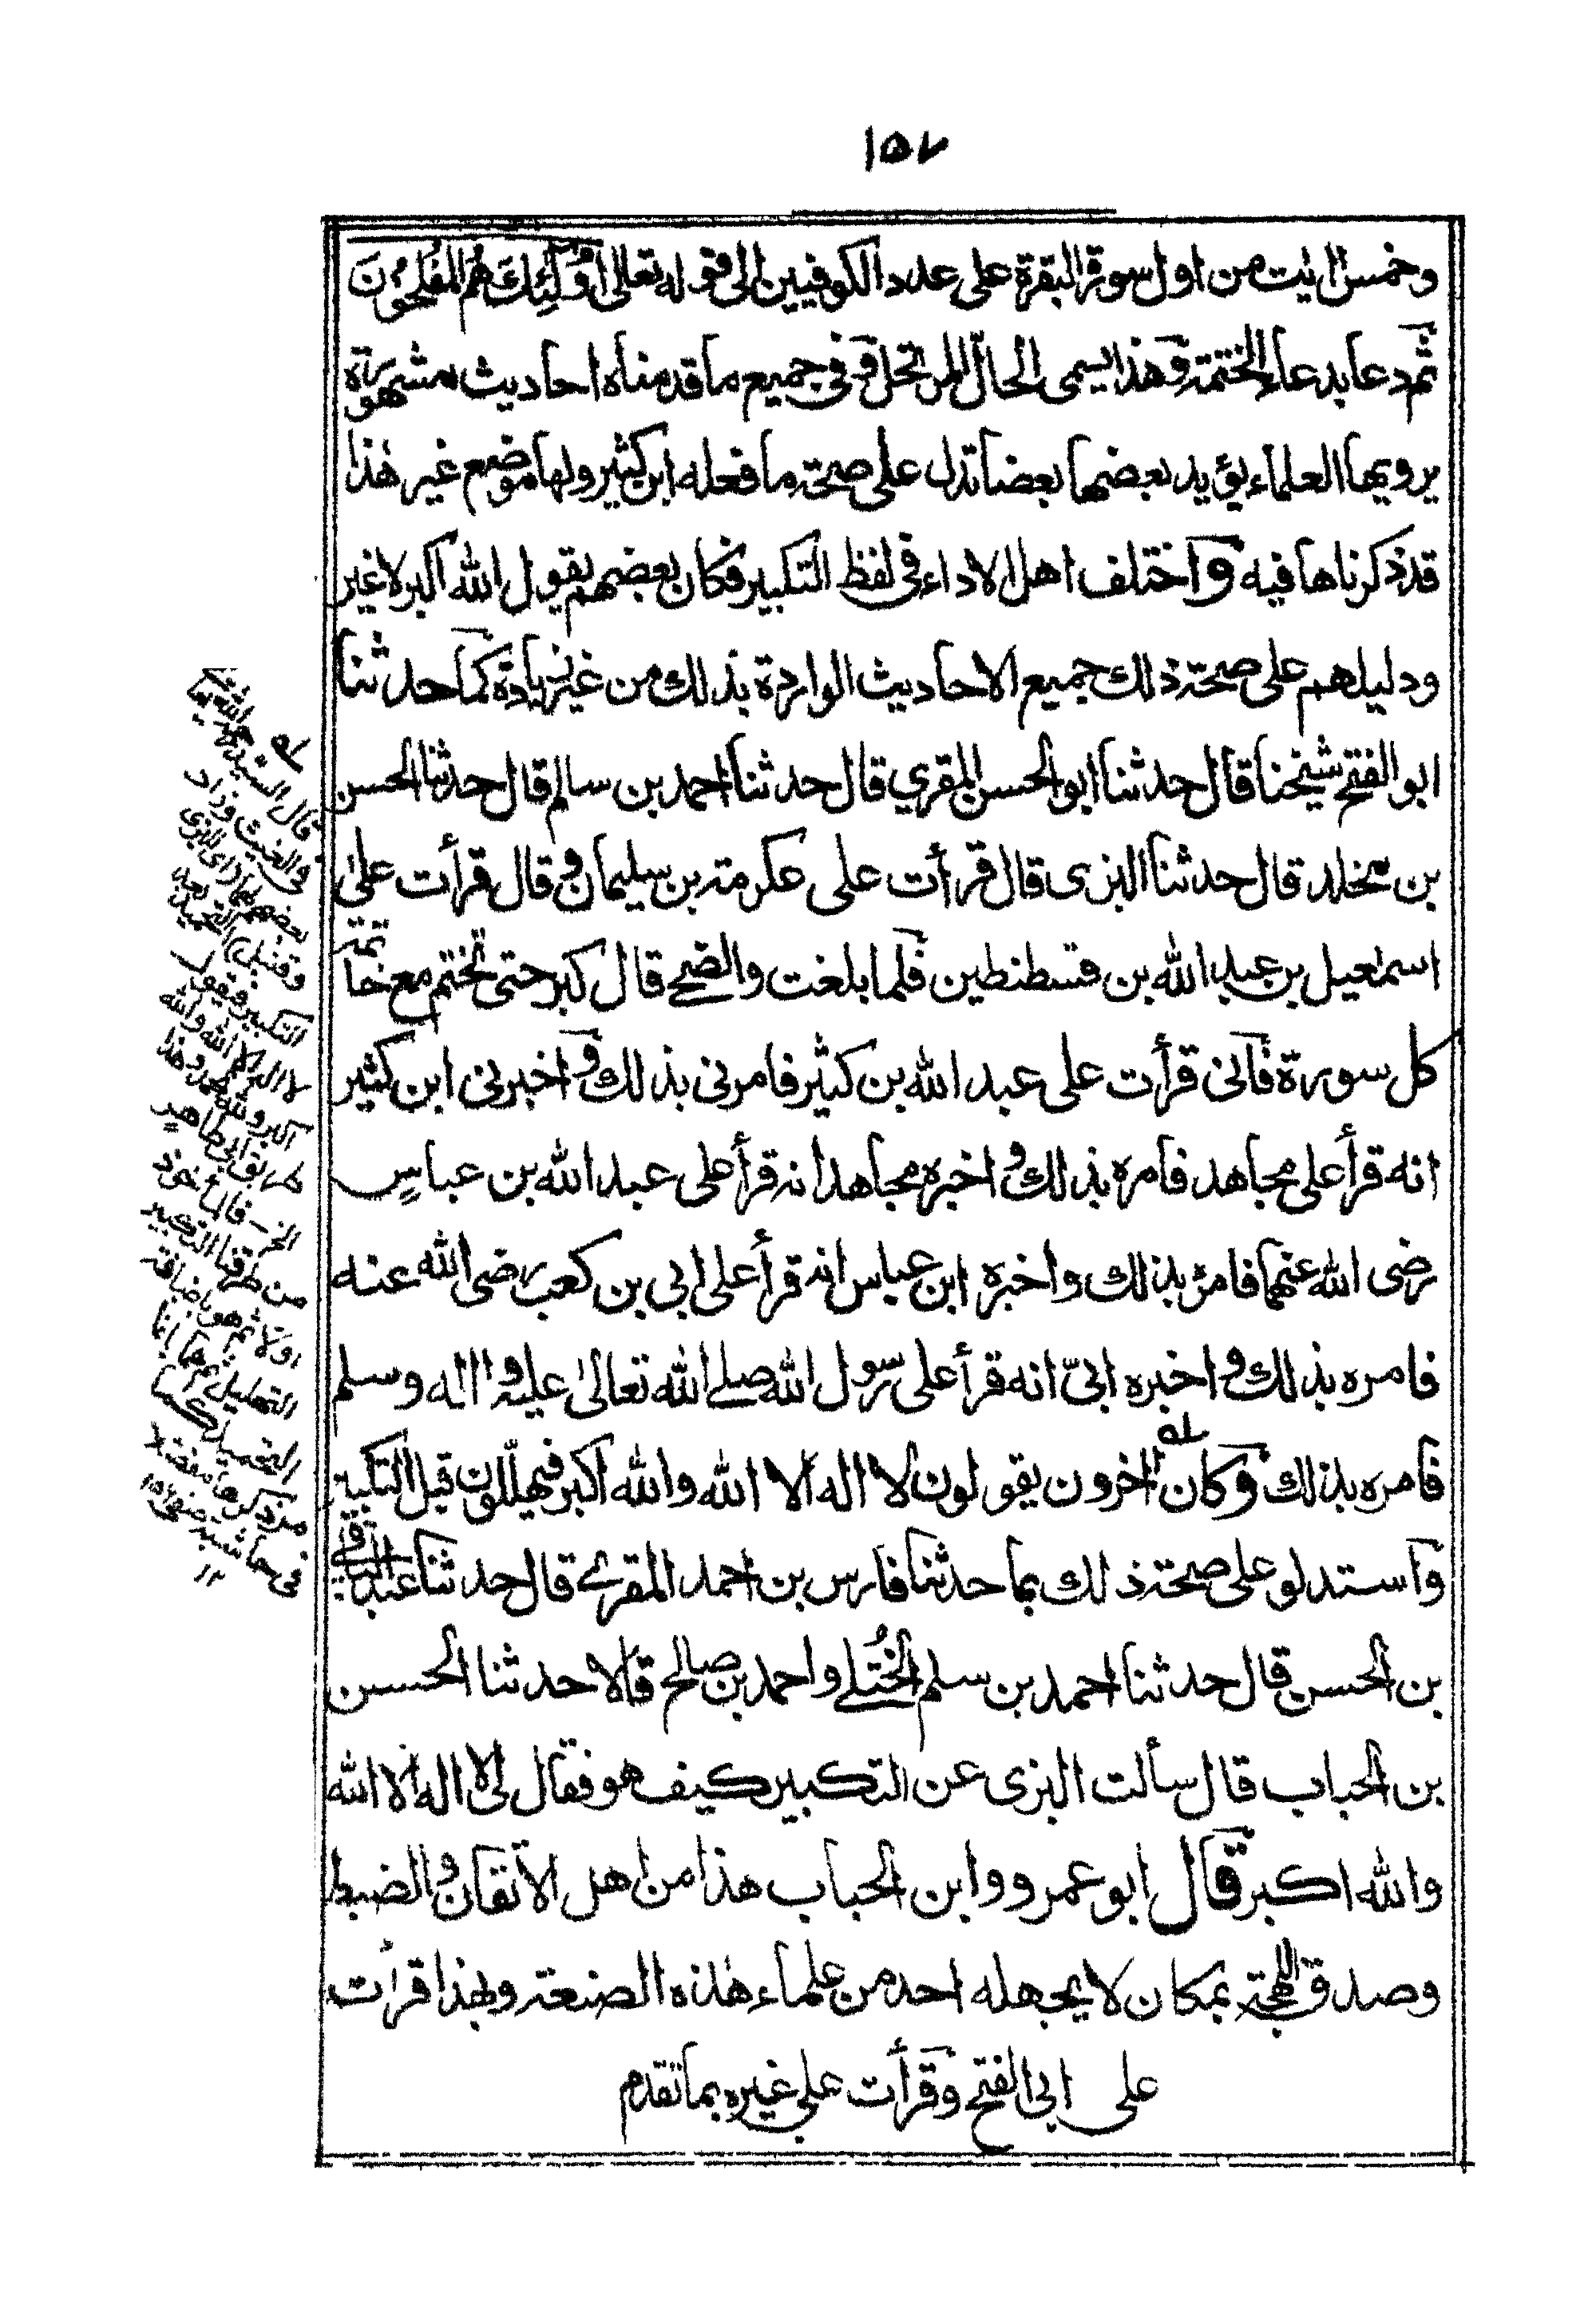 ١٥٧
وخمس اٰيت من اول سورة البقرة على عدد الكوفيين الى قوله تعالى اُولٰٓئِكَ هُمُ المُفْلِحُوْنَ
ثم دعا بدعاء الختمة وهذا يسمى الحالّ المرتحل وفى جميع ما قدمناه احاديث مشهورة
يرويها العلماء يؤيد بعضها بعضا تدل على صحة ما فعله ابن كثير ولها موضع غير هٰذا
قد ذكرناها فيه واختلف اهل الاداء فى لفظ التكبير فكان بعضهم يقول الله اكبر لا غير
ودليلهم على صحة ذلك جميع الاحاديث الواردة بذلك من غير زيادة كما حدثنا
ابو الفتح شيخنا قال حدثنا ابو الحسن المقري قال حدثنا احمد بن سالم قال حدثنا الحسن
بن مخلد قال حدثنا البزى قال قرأت على عكرمة بن سليمان وقال قرأت علىٰ
اسمٰعيل بن عبد الله بن قسطنطين فلما بلغت والضحے قال كبر حتى تختم مع خاتمة
كل سورة فانى قرأت على عبد الله بن كثير فامرنى بذلك واخبرنى ابن كثير
انه قرأ على مجاهد فامره بذلك واخبره مجاهد انه قرأ على عبد الله بن عباسٍ
رضى الله عنهما فامره بذلك واخبره ابن عباس انه قرأ على ابي بن كعب رضى الله عنه
فامره بذلك واخبره ابىّ انه قرأ على رسول الله صلے الله تعالىٰ عليه واٰله وسلم
فامره بذلك وكان اٰخرون يقولون لا اله الا الله والله اكبر فيهلّلون قبل التكبير
واستدلو على صحة ذلك بما حدثنا فارس بن احمد المقرے قال حدثنا عبد الباقے
بن الحسن قال حدثنا احمد بن سلم الخُتلے واحمد بن صالح قالا حدثنا الحسن
بن الحباب قال سألت البزى عن التكبير كيف هو فقال لى لا اله الا الله
والله اكبر قال ابو عمرو وابن الحباب هذا من اهل الاتقان والضبط
وصدق اللهجة بمكان لا يجهله احد من علماء هٰذه الصنعة وبهذا قرأت
على ابى الفتح وقرأت على غيره بما تقدم
قال السيد
فى الغيث وزاد
بعضهم لهما اى للبزى
وقنبل التحميد بعد
التكبير فيقول
لا اله الا الله والله
اكبر ولله الحمد وهذا
طريق ابى طاهر
من طرقنا التكبير
اولا ثم هو باضافة
التهليل
التحميد كما
مر ذكرها مفصلا
فى حاشية صفحه ١٥٤
١٢